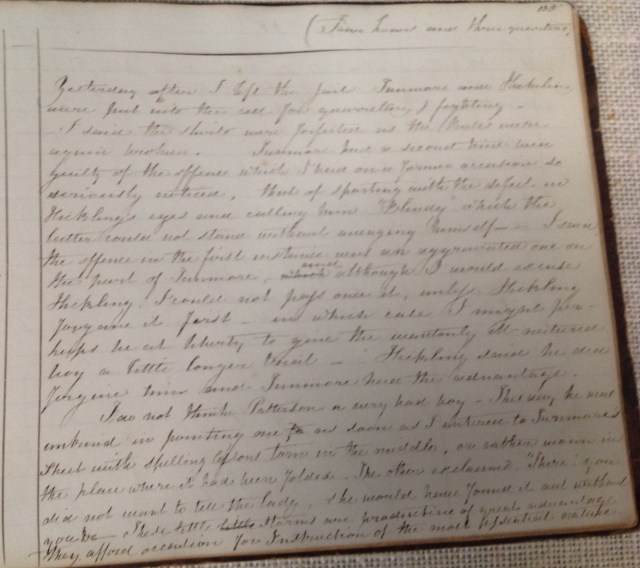 (Four hours and three quarters.
Yesterday after I left the jail Tunmore and Hickling
were put into the cell for quarreling & fighting –
I said the shirts were forfeited as the Rules were
again broken. Tunmore had a second time been
guilty of the offence which I had on a former occasion so
seriously noticed, that of sporting with the defect in
Hickling's eyes and calling him "Blindy" which the
latter could not stand without avenging himself – I said
the offence in the first instance was an aggravated one on
the part of Tunmore, and although I would excuse
Hickling I could not pass over it, unless Hickling
forgave it first – in which case I might per-
haps be at liberty to give the wantonly ill natured
boy a little longer trial – Hickling said he did
forgive him and Tunmore had the advantage.
I do not think Patterson a very bad boy – This day he was
in pointing me to as soon as I entered to Tunmores
sheet with spelling lessons torn in the middle, or rather worn in
the place where it had been folded. The other exclaimed "There! you
did not want to tell the lady, she would have found it out without
you" – These little storms are productive of great advantage
they afford occasion for Instruction of the most essential nature